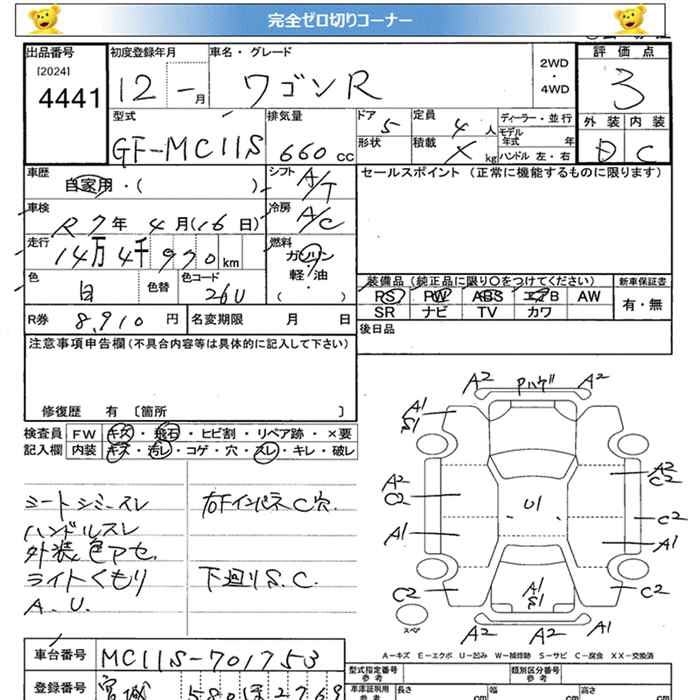 完全ゼロ切りコーナー
出品番号 初度登録年月 車名・グレード 2WD・4WD 評価点
[2024] 4441 12-月 ワゴンR 3
型式 排気量 ドア 5 定員 4人 ディーラー・並行 外装 内装
GF-MC11S 660cc 形状 積載 ✕kg モデル年式 年 ハンドル 左・右 D C
車歴 自家用・( ) シフト A/T セールスポイント (正常に機能するものに限ります)
車検 R7年4月(16日) 冷房 A/C
走行 14万4千970km 燃料 ガソリン 軽・油 ( )
色 白 色替 色コード 26U 装備品 (純正品に限り〇をつけてください) 新車保証書
PS PW ABS エアB AW 有・無
R券 8,910円 名変期限 月 日 SR ナビ TV カワ
注意事項申告欄(不具合内容等は具体的に記入して下さい) 後日品
修復歴 有 〔箇所 〕
検査員 FW キズ・飛石・ヒビ割・リペア跡・×要
記入欄 内装 キズ・汚レ・コゲ・穴・スレ・キレ・破レ
シートシミ、スレ 右FインパネC穴.
ハンドルスレ
外装色アセ
ライトくもり 下廻りS.C.
A.U.
A2 Pハゲ A2
A1 S1
A2 C2 U1 A2 C2
A1 C2
A1
C2 A1 S1 C2
スペア A2 A2 A1
A-キズ E-エクボ U-凹み W-補修跡 S-サビ C-腐食 XX-交換済
車台番号 MC11S-701753 型式指定番号 参考 類別区分番号 参考
登録番号 宮城 580 ほ 2769 車庫証明用 参考 長さ 幅 高さ